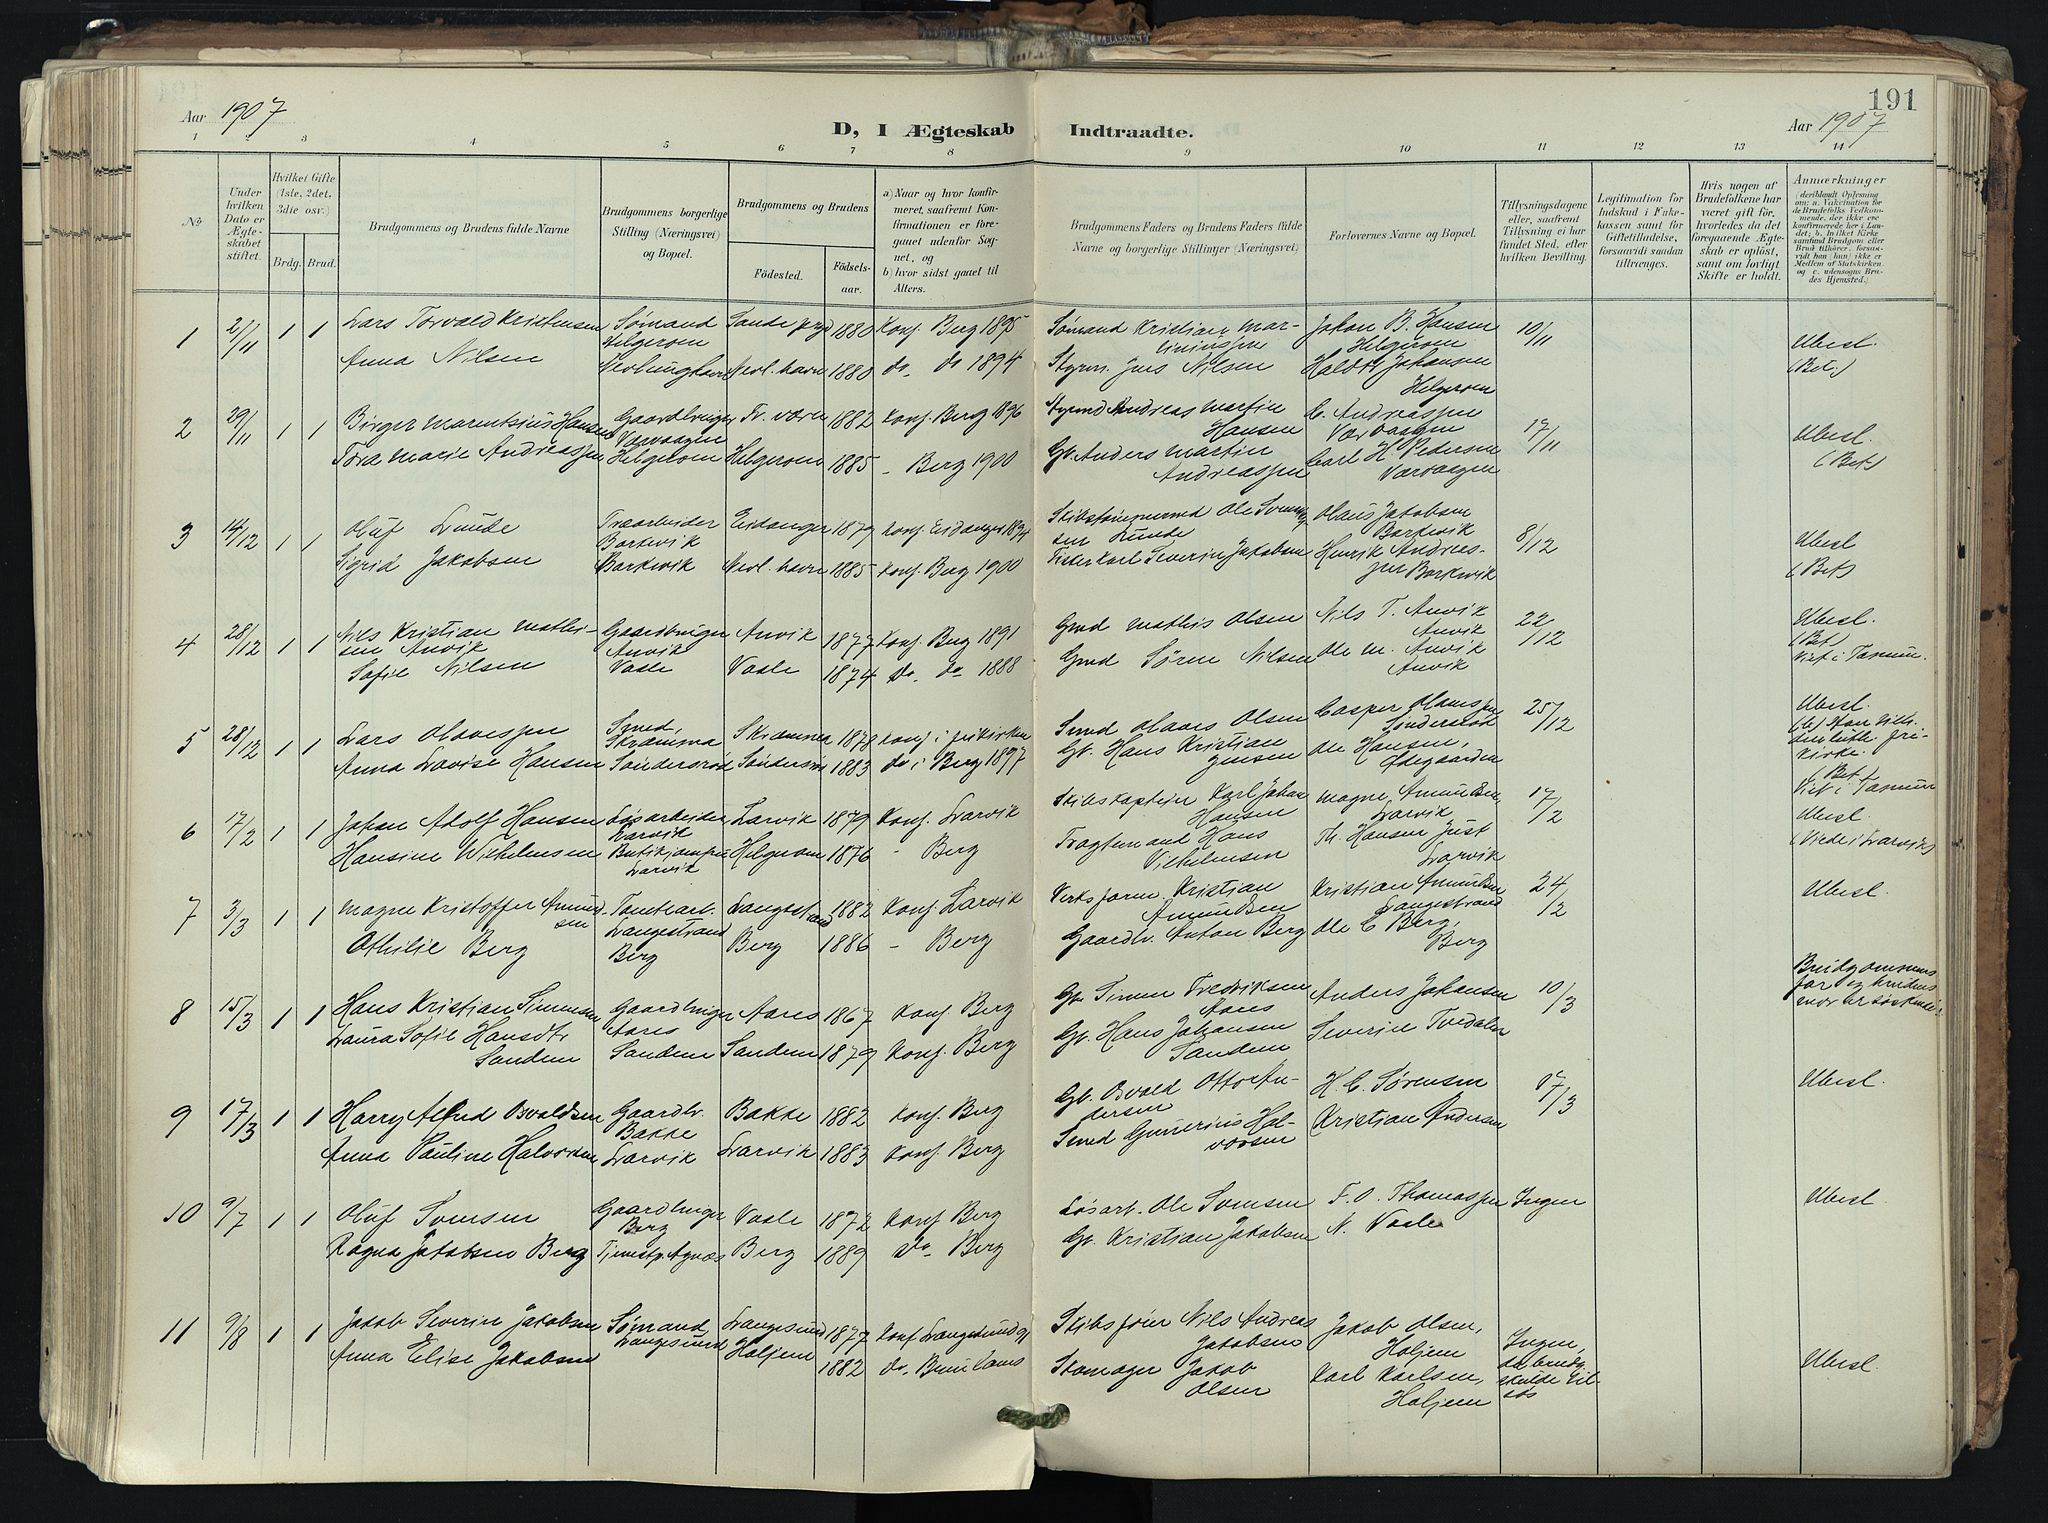 191
Aar 1907
D, I Ægteskab Indtraadte.
Aar 1907
1 2 3 4 5 6 7 8 9 10 11 12 13 14
No.
Under hvilken Dato er Ægteskabet stiftet.
Hvilket Gifte (1ste, 2det, 3die osv.)
Brdg. Brud.
Brudgommens og Brudens fulde Navne
Brudgommens borgerlige Stilling (Næringsvei) og Bopæl.
Brudgommens og Brudens
Födested.
Födselsaar.
a) Naar og hvor konfirmeret, saafremt Konfirmationen er foregaaet udenfor Sognet, og
b) hvor sidst gaaet til Alters.
Brudgommens Faders og Brudens Faders fulde Navne og borgerlige Stillinger (Næringsvei)
Forlovernes Navne og Bopæl.
Tillysningsdagene eller, saafremt Tillysning ei har fundet Sted, efter hvilken Bevilling.
Legitimation for Indskud i Enkekassen samt for Giftetilladelse, forsaavidt saadan tiltrænges.
Hvis nogen af Brudefolkene har været gift för, hvorledes da det foregaaende Ægteskab er oplöst, samt om lovligt Skifte er holdt.
Anmærkninger
1 2/11 1 1 Lars Torvald Kristensen Sømand Helgerom Sande prgd 1880 Konf. Berg 1895 Sømand Kristian Mar- Jakon B. Hansen 10/11 Ubesl.
Anna Nilsen Nevlunghavn Nevl. havn 1880 do. do 1894 Styrm. Jens Nilsen Helgerom Johansen Helgerom (Bet.)
2 29/11 1 1 Birger Marentsius Hansen Gaardbruger Værvaagen Fr.værn 1882 Konf. Berg 1896 Styrmd Andreas Martin Hansen C. Andreassen Værvaagen 17/11 Ubesl.
Tora Marie Andreassen Helgerom Helgerom 1885 - Berg 1900 Gb. Anders Martin Andreassen Carl H. Pedersen Værvaagen (Bet)
3 14/12 1 1 Oluf Lunde Barkevik Eidanger 1879 Konf. Eidanger 1894 Ole Lunde Olaus Jakobsen Barkevik 8/12 Ubesl
Sigrid Jakobsen Barkevik Nevl. havn 1885 Konf. Berg 1900 Severin Jakobsen Henrik Andreassen Barkevik (Bet)
4 28/12 1 1 Nils Kristian Mathisen Anvik Gaardbruger Anvik Anvik 1877 Konf. Berg 1891 Gmd Mathis Olsen Nils T. Anvik Anvik 22/12 Ubesl.
Sofie Nilsen Vasle Vasle 1874 do. do 1888 Gmd Søren Nilsen Ole M. Anvik Anvik (Bet) Viet i Tanum.
5 28/12 1 1 Lars Olavessen Smed, 1878 Konf i frikirken Smed Olaves Olsen Casper Olavessen 25/12 Ubesl.
Anna Lovise Hansen Søndersrød Søndersrød 1883 do i Berg 1897 Gb. Hans Kristian Jensen Ole Hansen, Ødegaarden kirke. (Bet) Viet i Tanum
6 17/2 1 1 Johan Adolf Hansen Løsarbeider Larvik Larvik 1879 Konf. Larvik Skibskaptein Karl Johan Hansen Magne Amundsen, Larvik 17/2 Ubesl.
Hansine Vilhelmsen Butikjomfru Larvik Helgerom 1876 - Berg Hans Vilhelmsen Th. Hansen Just Larvik (Viede i Larvik)
7 3/3 1 1 Magne Kristoffer Amundsen Tomtearb. Langestrand Langestrand 1882 Konf. Larvik Verksform. Kristian Amundsen Kristian Amundsen Langestrand 24/2 Ubesl.
Othilie Berg Berg Berg 1886 - Berg Gaardbr. Anton Berg Ole C Berg, Berg
8 15/3 1 1 Hans Kristian Simensen Gaardbruger Aares Aares 1867 Konf. Berg Gb. Simen Fredriksen Aares Anders Johansen 10/3 Brudgommens far og brudens mor er søskende.
Laura Sofie Hansdtr Sanden Sanden Sanden 1879 Konf. Berg Gb. Hans Johansen Sanden Severin Tvedalen
9 17/3 1 1 Harry Alfred Osvaldsen Gaardbr. Bakke Bakke 1882 Konf. Berg Gb. Osvald Otto Andersen H. C. Sørensen 17/3 Ubesl.
Anna Pauline Halvorsen Larvik Larvik 1883 Konf. Berg Smed Gunerius Halvorsen Kristian Andersen
10 9/7 1 1 Oluf Svensen Gaardbruger Berg Vasle 1872 Konf Berg Løsarb. Ole Svensen F. O. Thomassen Ingen Ubesl.
Ragna Jakobsen Berg Tjenstp. Agnæs Berg 1889 do Berg Gb. Kristian Jakobsen N. Vasle
11 9/8 1 1 Jakob Severin Jakobsen Sømand Langesund Langesund 1877 Konf. Langesund 91 Skibsfører Nils Andreas Jakobsen Jakob Olsen, Holjem Ingen, da brudg. skulde til søs Ubesl.
Anna Elise Jakobsen Holjem 1882 do. Brunlanes Skomager Jakob Olsen Karl Karlsen, Holjem